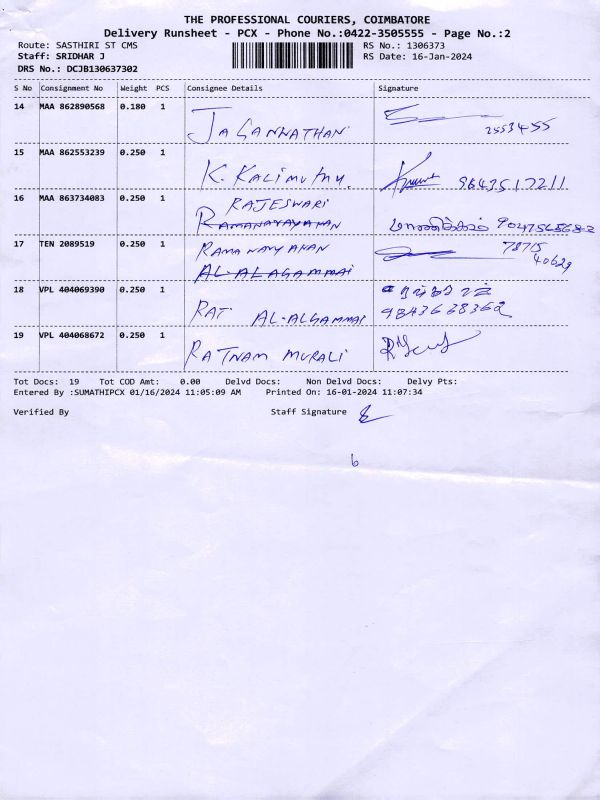 THE PROFESSIONAL COURIERS, COIMBATORE
Delivery Runsheet - PCX - Phone No.:0422-3505555 - Page No.:2
Route: SASTHIRI ST CMS
RS No.: 1306373
Staff: SRIDHAR J
RS Date: 16-Jan-2024
DRS No.: DCJB130637302
S No Consignment No Weight PCS Consignee Details Signature
14 MAA 862890568 0.180 1 JAGANNATHAN 2553455
15 MAA 862553239 0.250 1 K. KALIMUTHU. 9843517211
16 MAA 863734083 0.250 1 RAJESWARI
RAMANARAYAHAN
17 TEN 2089519 0.250 1 RAMANARYAHAN 78715
AL-ALAGAMMAI 40629
18 VPL 404069390 0.250 1
RAT AL-ALGAMMAI 9843638362
19 VPL 404068672 0.250 1 RATNAM MURALI
Tot Docs: 19 Tot COD Amt: 0.00 Delvd Docs: Non Delvd Docs: Delvy Pts:
Entered By :SUMATHIPCX 01/16/2024 11:05:09 AM Printed On: 16-01-2024 11:07:34
Verified By Staff Signature
6